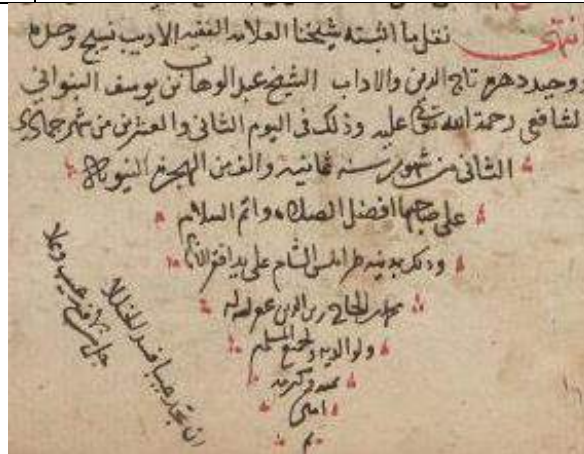 انتهى نقل ما اثبته شيخنا العلامه الفقيه الاديب نسيج وحده
وحيد دهره تاج الدين والاداب الشيخ عبد الوهاب بن يوسف
لشافعي رحمة الله تعالى عليه وذلك فى اليوم الثانى والعشرين من شهر جمادى
الثانى من شهور سنه ثمانيه والف من الهجره النبويه
على صاحبها افضل الصلاه واتم السلام
وذلك بمدينه طرابلس الشام على يد افقر الانام
الحاج زين الدين غفر له
ولوالديه ولجميع المسلمين
بمنه وكرمه
امين
م
ان تجد عيبا فسد الخللا
جل من لا فيه عيب وعلا